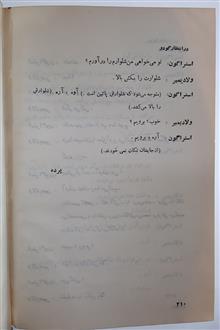 در انتظار گودو
استراگون: تو می‌خواهی من شلوارم را درآورم؟
ولادیمیر: شلوارت را بکش بالا.
استراگون: (متوجه می‌شود که شلوارش پائین است.) آره، آره. (شلوارش
را بالا می‌کشد.)
ولادیمیر: خوب؟ برویم؟
استراگون: آره برویم.
(از جایشان تکان نمی‌خورند.)
پرده
۲۱۰